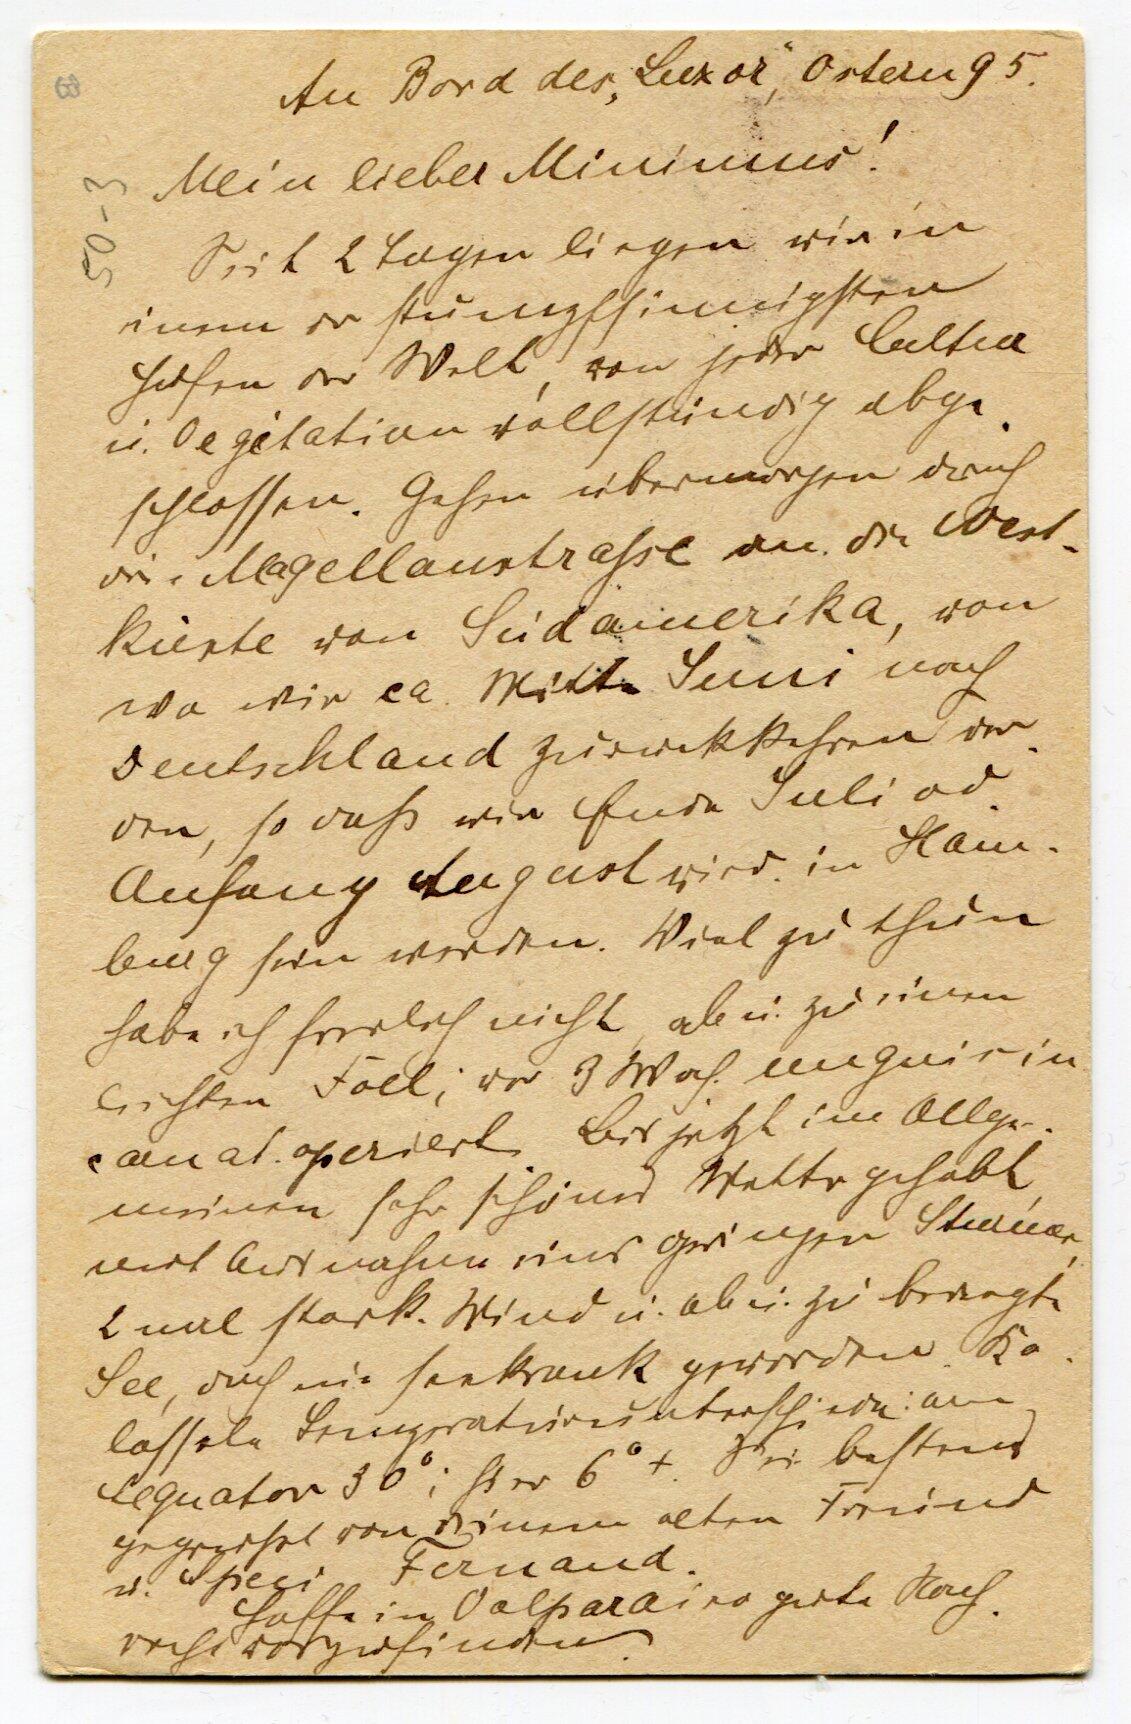 An Bord des „Luxor", Ostern 95.
Mein lieber Minimus!
Seit 2 Tagen liegen wir in
einem der stumpfsinnigsten
Häfen der Welt, von jeder Cultur
u. Vegetation vollständig abge-
schlossen. Gehen übermorgen durch
die Magellanstraße an die West-
küste von Südamerika, von
wo wir ca. Mitte Juni nach
Deutschland zurückkehren wer-
den, so daß wir Ende Juli od.
Anfang August wied. in Ham-
burg sein werden. Viel zu thun
habe ich freilich nicht, ab u. zu einen
leichten Fall; vor 3 Woch. unguis in
carnat. operiert. Bis jetzt im Allge-
meinen sehr schönes Wetter gehabt,
mit Ausnahme eines geringen Sturmes,
2 mal stark. Wind u. ab u. zu bewegte
See, doch nie seekrank geworden. Ko-
lossale Temperaturunterschiede: am
Aequator 30°; hier 6° +. Sei bestens
gegrüßt von Deinem alten Freund
u. Spezi Fernand.
Hoffe in Valparaiso gute Nach-
richt vorzufinden.
50-3